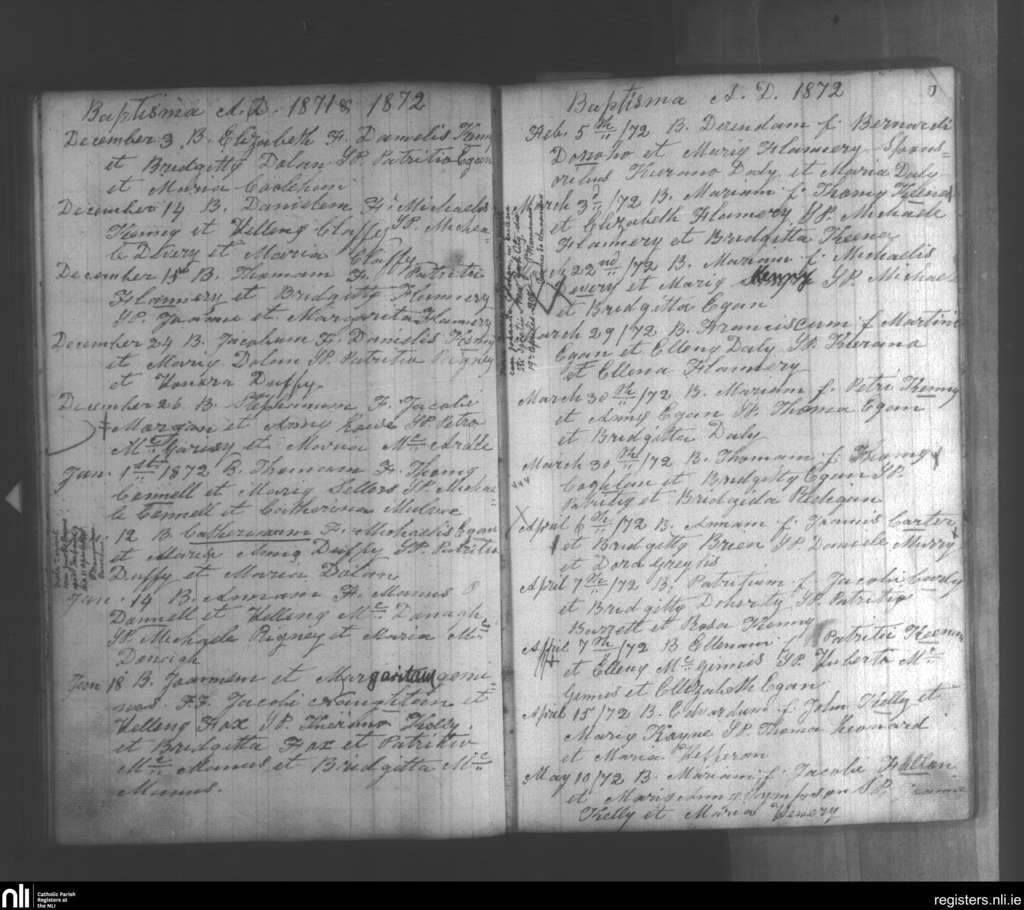 Baptisma A.D. 1871 & 1872
December 3 B. Elizabeth F. Danielis Kenny
et Bridgetty Dolan SP. Patritio Egan
et Maria Coolehan
December 14 B. Danielem F. Michaelis
Kenny et Helleng Claffy SP. Michea-
le Divery et Maria Claffy
December 15 B. Thomam F. Patritii
Flannery et Bridgitty Flannery
SP. Joanne et Margarita Flannery
December 24 B. Jacobum F. Danielis Kenny
et Mariy Dolan SP. Patritio Rigney
et Honora Duffy
December 26 B. F. Jacobi
Morgan et Anny Rowe SP. Petro
Mc et Maria Mc Ardle
Jan. 1st 1872 B. Thomam F. Thomy
Connell et Mariy Sellers SP. Michae-
le Connell et Catherina
12 B. Catherinam F. Michaelis Egan
et Marie Anny Duffy SP. Patritio
Duffy et Maria Dolan
Jan. 14 B. Annam F. Manus O
Donnell et Helleng Mc Donagh
SP. Michaele Rigney et Maria Mc
Donagh
Jan 18 B. Joannem et Margaritam gemi-
nos FF. Jacobi Naughton et
Helleng Fox SP. Kierano
et Bridgitta Fox et Patritio
Mc Manus et Bridgitta Mc
Manus.
Baptisma A.D. 1872
Feb. 5th /72 B. f. Bernardi
Donoho et Mariy Flannery Spons-
oribus Kierano Daly et Maria Daly
March 3d /72 B. Mariam f. Thomy Keena
et Elizabeth Flannery SP. Michaele
Flannery et Bridgitta Keena
March 22nd /72 B. Mariam f. Michaelis
et Mariy SP. Michaele
et Bridgitta Egan
March 29 /72 B. Franciscum f. Martini
Egan et Elleny Daly SP. Kierano
et Ellena Flannery
March 30th /72 B. Mariam f. Petri Kenny
et Anny Egan SP. Thoma Egan
et Bridgitta Daly
March 30th /72 B. Thomam f. Thomy
Coghlan et Bridgitty Egan SP.
Patritio et Bridgida
April 6th /72 B. Annam f. Joannis Carter
et Bridgetty Brien SP. Daniele Murry
et Dora
April 7th /72 B. Patritium f. Jacobi
et Bridgitty Doherty SP. Patritio
Barrett et Rosa Kenny
April 7th /72 B. Ellenam f. Patritii Keenan
et Elleny Mc Gennis SP. Huberto Mc
Gennis et Ellizabeth Egan
April 15 /72 B. Edwardum f. John Kelly et
Mariy Kayne SP. Thoma Leonard
et Maria Hefferon
May 10 /72 B. Mariam f. Jacobi
et Marie Anny Sympson SP.
Kelly et Maria
nli
Catholic Parish
Registers at
the NLI
registers.nli.ie